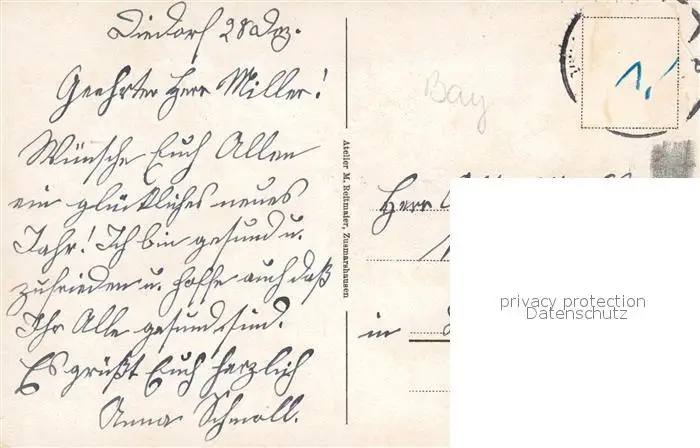 Diedorf 28 Dez.
Geehrter Herr Miller!
Wünsche Euch Allen
ein glückliches neues
Jahr! Ich bin gesund u.
zufrieden u. hoffe auch daß
Ihr Alle gesund sind.
Es grüßt Euch herzlich
Anna Schmoll.
Atelier M. Reitmaier, Zusmarshausen
Bay
Herr
in
privacy protection
Datenschutz